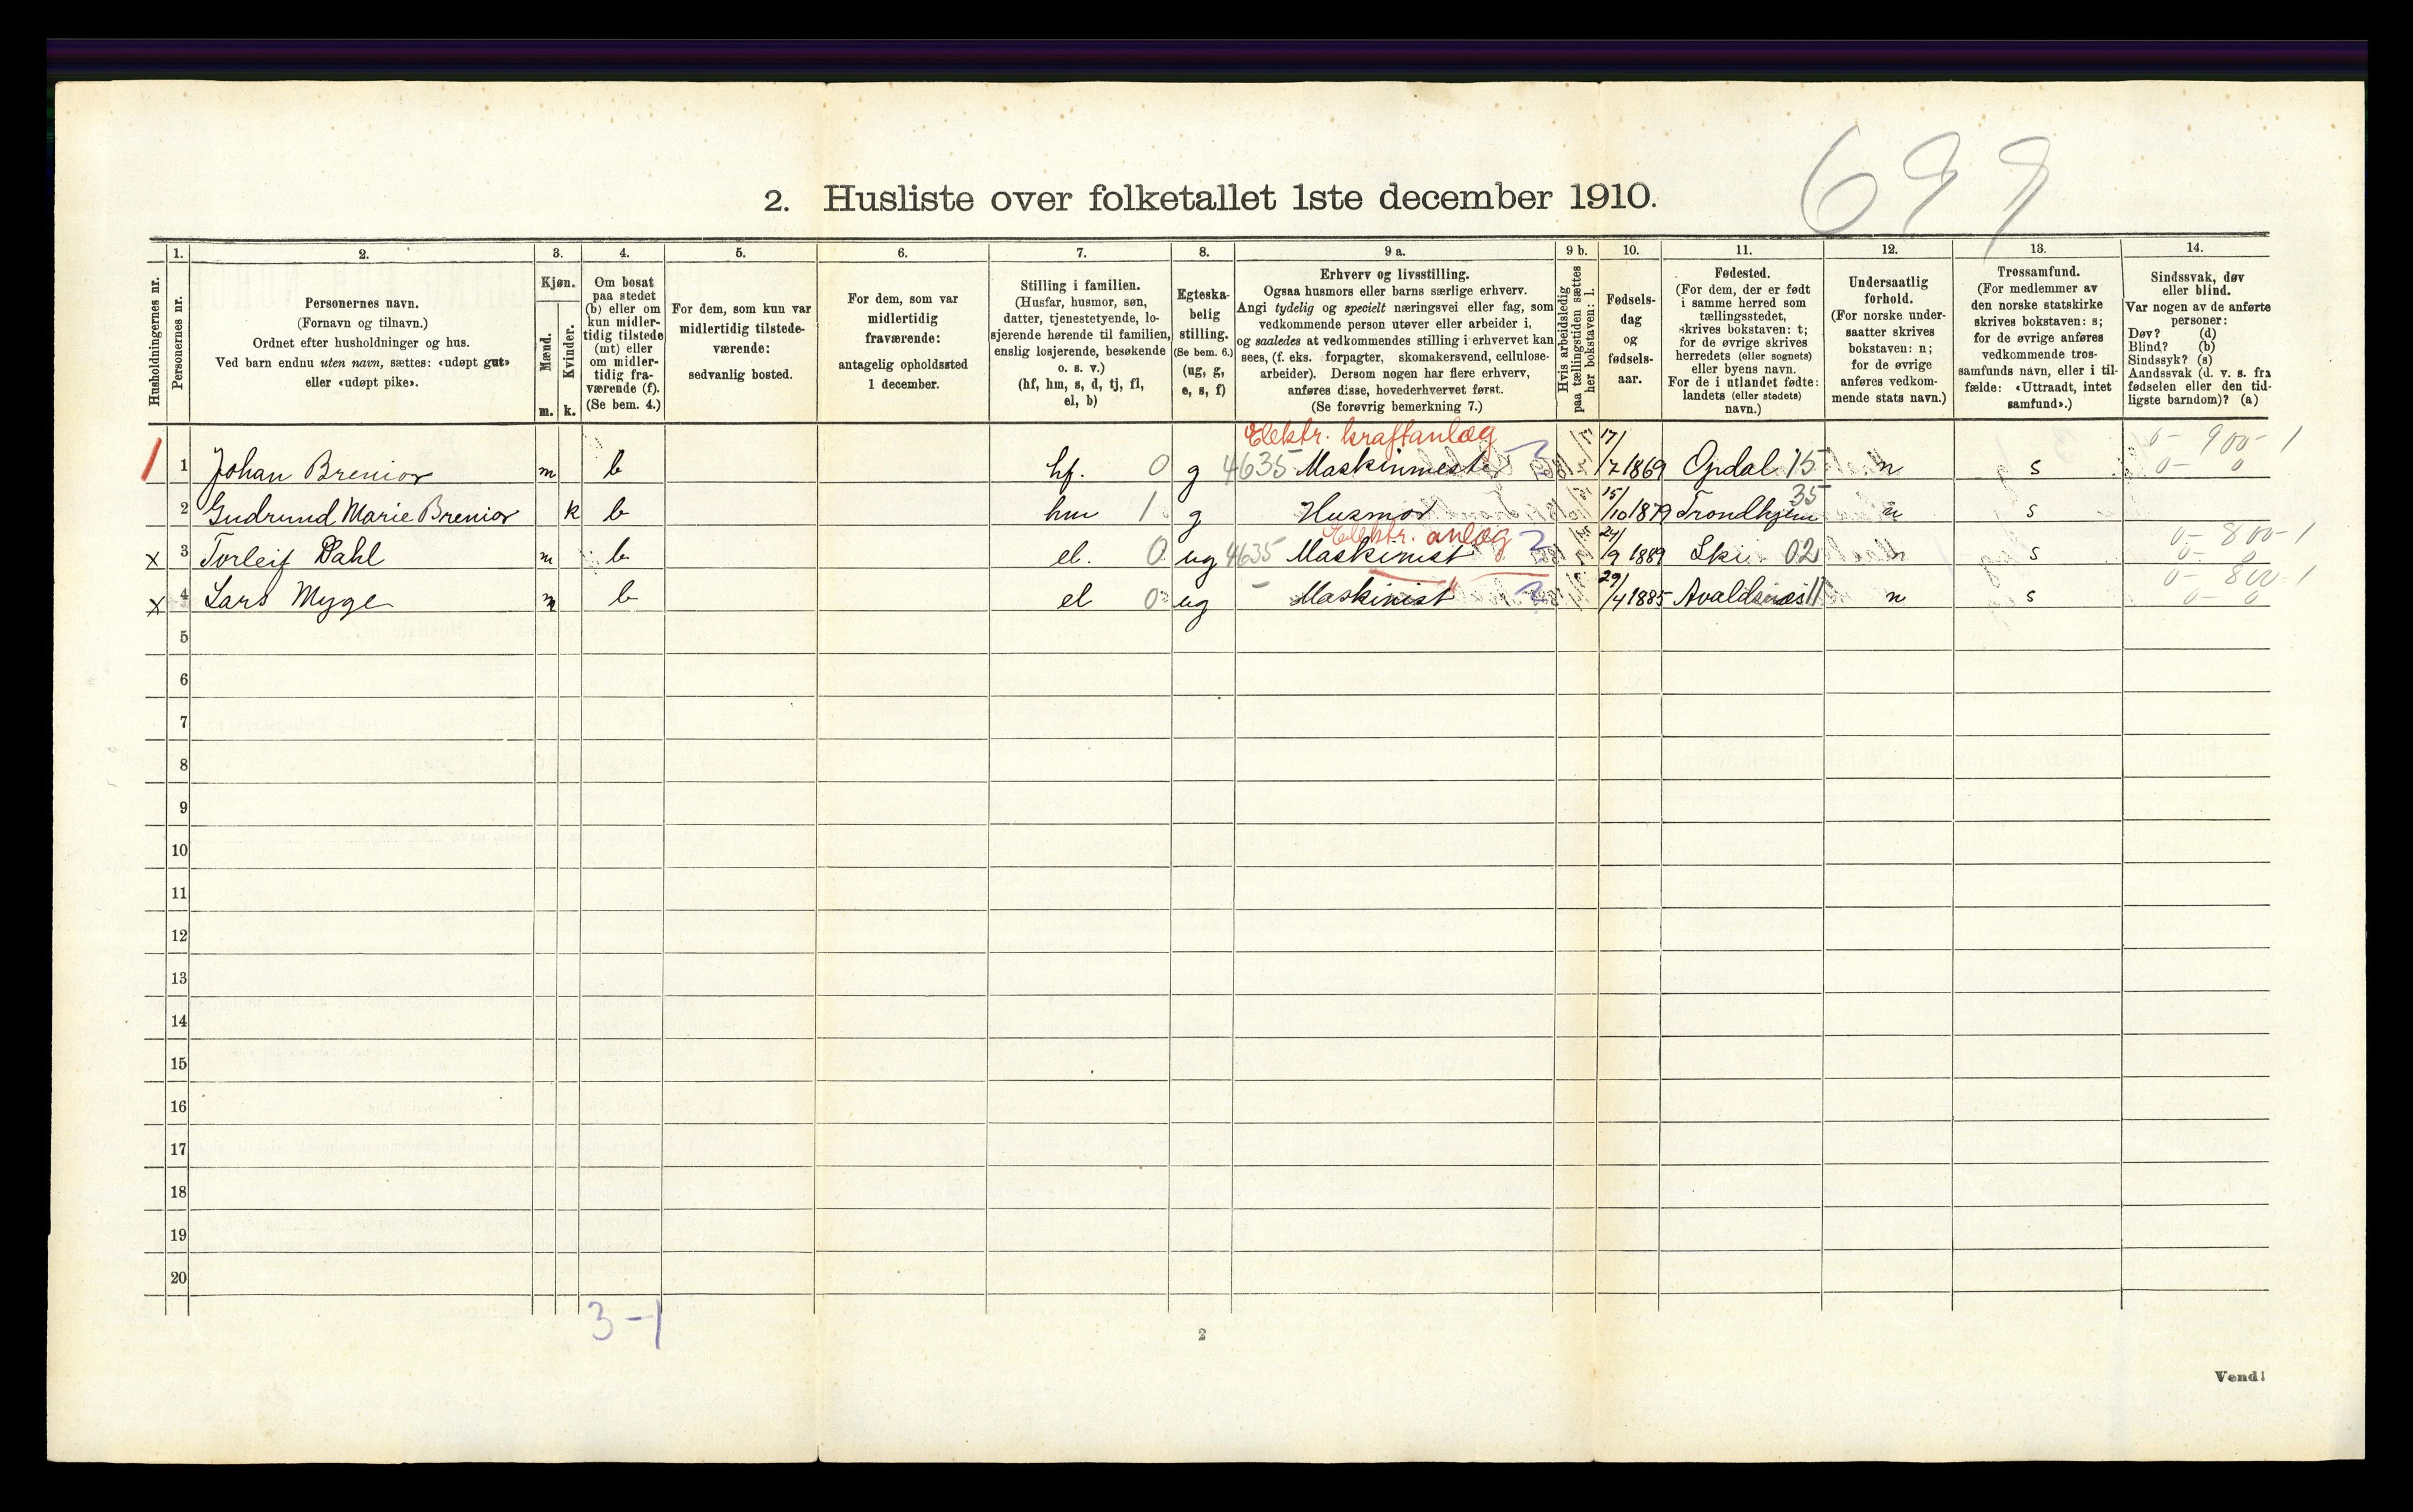 699
2. Husliste over folketallet 1ste december 1910.
Husholdningernes nr.
1.
Personernes nr.
2.
Personernes navn.
(Fornavn og tilnavn.)
Ordnet efter husholdninger og hus.
Ved barn endnu uten navn, sættes: «udøpt gut»
eller «udøpt pike».
3.
Kjøn.
Mænd.
m.
Kvinder.
k.
4.
Om bosat
paa stedet
(b) eller om
kun midler-
tidig tilstede
(mt) eller
om midler-
tidig fra-
værende (f).
(Se bem. 4.)
5.
For dem, som kun var
midlertidig tilstede-
værende:
sedvanlig bosted.
6.
For dem, som var
midlertidig
fraværende:
antagelig opholdssted
1 december.
7.
Stilling i familien.
(Husfar, husmor, søn,
datter, tjenestetyende, lo-
sjerende hørende til familien,
enslig losjerende, besøkende
o. s. v.)
(hf, hm, s, d, tj, fl,
el, b)
8.
Egteska-
belig
stilling.
(Se bem. 6.)
(ug, g,
e, s, f)
9 a.
Erhverv og livsstilling.
Ogsaa husmors eller barns særlige erhverv.
Angi tydelig og specielt næringsvei eller fag, som
vedkommende person utøver eller arbeider i,
og saaledes at vedkommendes stilling i erhvervet kan
sees, (f. eks. forpagter, skomakersvend, cellulose-
arbeider). Dersom nogen har flere erhverv,
anføres disse, hovederhvervet først.
(Se forøvrig bemerkning 7.)
9 b.
Hvis arbeidsledig
paa tællingstiden sættes
her bokstaven: l.
10.
Fødsels-
dag
og
fødsels-
aar.
11.
Fødested.
(For dem, der er født
i samme herred som
tællingsstedet,
skrives bokstaven: t;
for de øvrige skrives
herredets (eller sognets)
eller byens navn.
For de i utlandet fødte:
landets (eller stedets)
navn.)
12.
Undersaatlig
forhold.
(For norske under-
saatter skrives
bokstaven: n;
for de øvrige
anføres vedkom-
mende stats navn.)
13.
Trossamfund.
(For medlemmer av
den norske statskirke
skrives bokstaven: s;
for de øvrige anføres
vedkommende tros-
samfunds navn, eller i til-
fælde: «Uttraadt, intet
samfund».)
14.
Sindssvak, døv
eller blind.
Var nogen av de anførte
personer:
Døv? (d)
Blind? (b)
Sindssyk? (s)
Aandssvak (d. v. s. fra
fødselen eller den tid-
ligste barndom)? (a)
Elektr. kraftanlæg 0- 900- 1
1 1 Johan Brenior m b hf. 0 g 4635 Maskinmester 2 17/7 1869 Opdal 15 n s 0- 0
2 Gudrund Marie Brenior k b hm 1 g Husmor 15/10 1879 Trondhjem 35 n s
Elektr. anlæg 0- 800- 1
x 3 Torleif Dahl m b el. 0 ug 4635 Maskinist 2 24/9 1889 Ski 02 n s 0- 0
0- 800- 1
x 4 Lars Myge m b el 0 ug - Maskinist " 2 29/4 1885 Avaldsnæs 11 n s 0- 0
5
6
7
8
9
10
11
12
13
14
15
16
17
18
19
20
3-1
2
Vend!